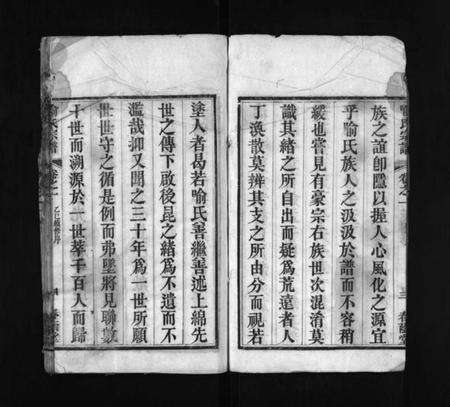 族之誼卽隱以握人心風化之源宜
乎喻氏族人之汲汲於譜而不容稍
緩也嘗見有豪宗右族世次混淆莫
識其緒之所自出而疑爲荒遠者人
丁渙散莫辨其支之所由分而視若
塗人者曷若喻氏善繼善述上綿先
世之傳下啟後昆之緒爲不遺而不
濫哉抑又聞之三十年爲一世所願
世世守之循是例而弗墜將見聯數
十世而溯源於一世萃千百人而歸
喻氏宗譜
卷之一
三